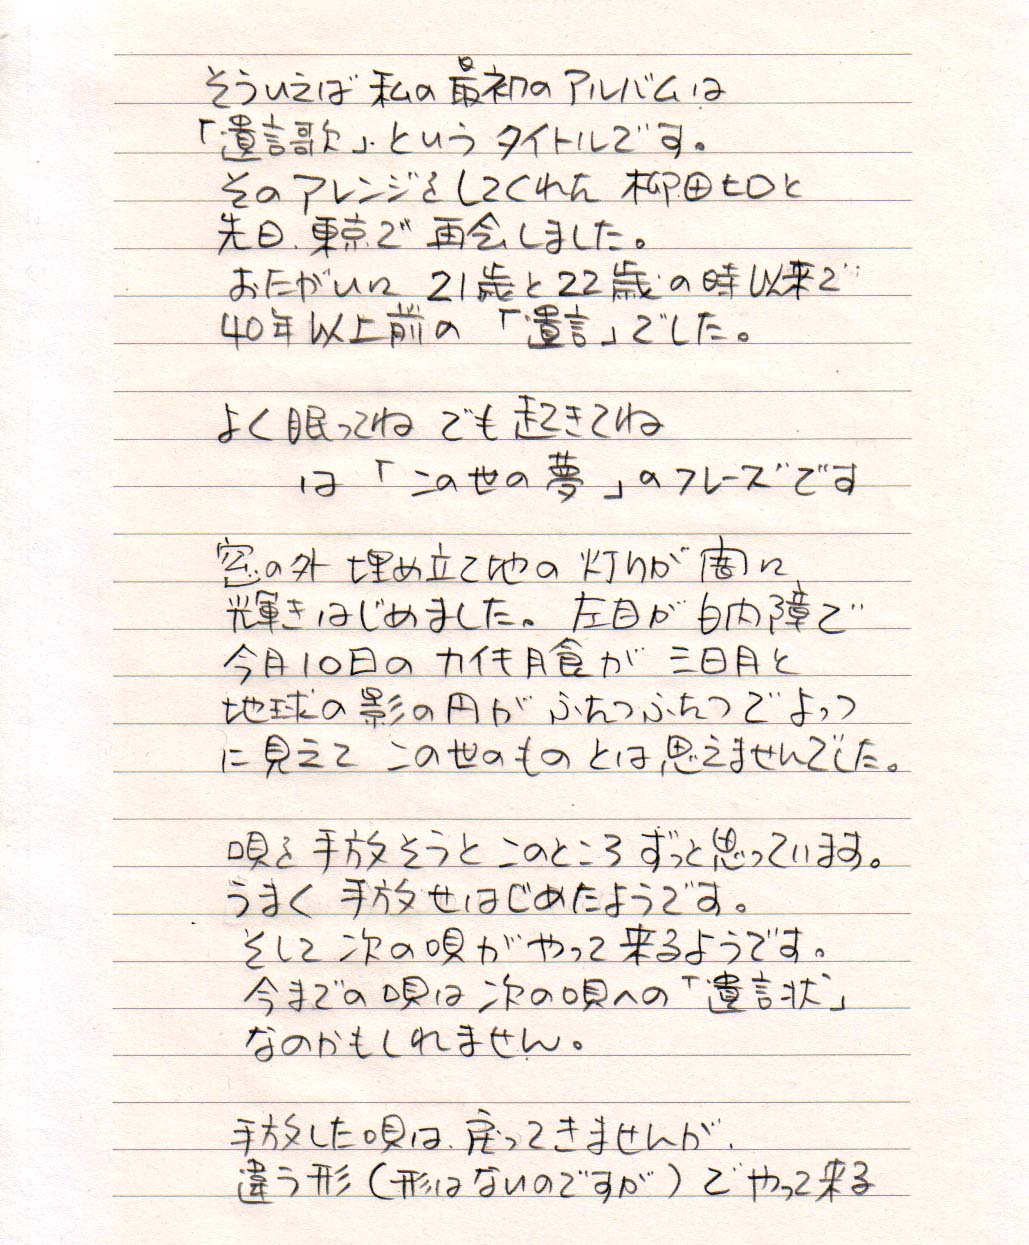 そういえば 私の最初のアルバムは
「遺言歌」という タイトルです。
そのアレンジをしてくれた 柳田ヒロと
先日、東京で 再会しました。
おたがいに 21歳と22歳の時以来で
40年以上前の「遺言」でした。
よく眠ってね でも起きてね
は「この世の夢」のフレーズです
窓の外 埋め立て地の 灯りが 闇に
輝きはじめました。左目が白内障で
今月10日の カイキ月食が 三日月と
地球の影の円が ふたつふたつで よっつ
に見えて この世のもの とは思えませんでした。
唄を手放そうと このところ ずっと思っています。
うまく 手放せはじめたようです。
そして 次の唄がやって来るようです。
今までの唄は 次の唄への「遺言状」
なのかもしれません。
手放した唄は、戻ってきませんが、
違う形(形はないのですが)で やって来る